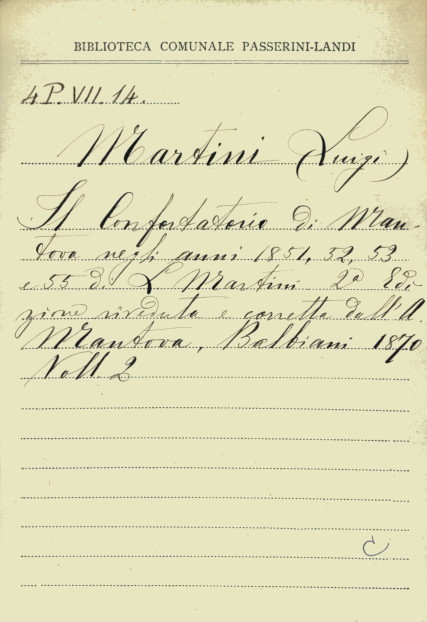 BIBLIOTECA COMUNALE PASSERINI-LANDI
4P.VII.14.
Martini (Luigi)
Il Confortatorio di Man-
tova negli anni 1851, 52, 53
e 55 d. L Martini 2ª Edi
zione riveduta e corretta dall'A.
Mantova, Balbiani 1870
Voll. 2
C